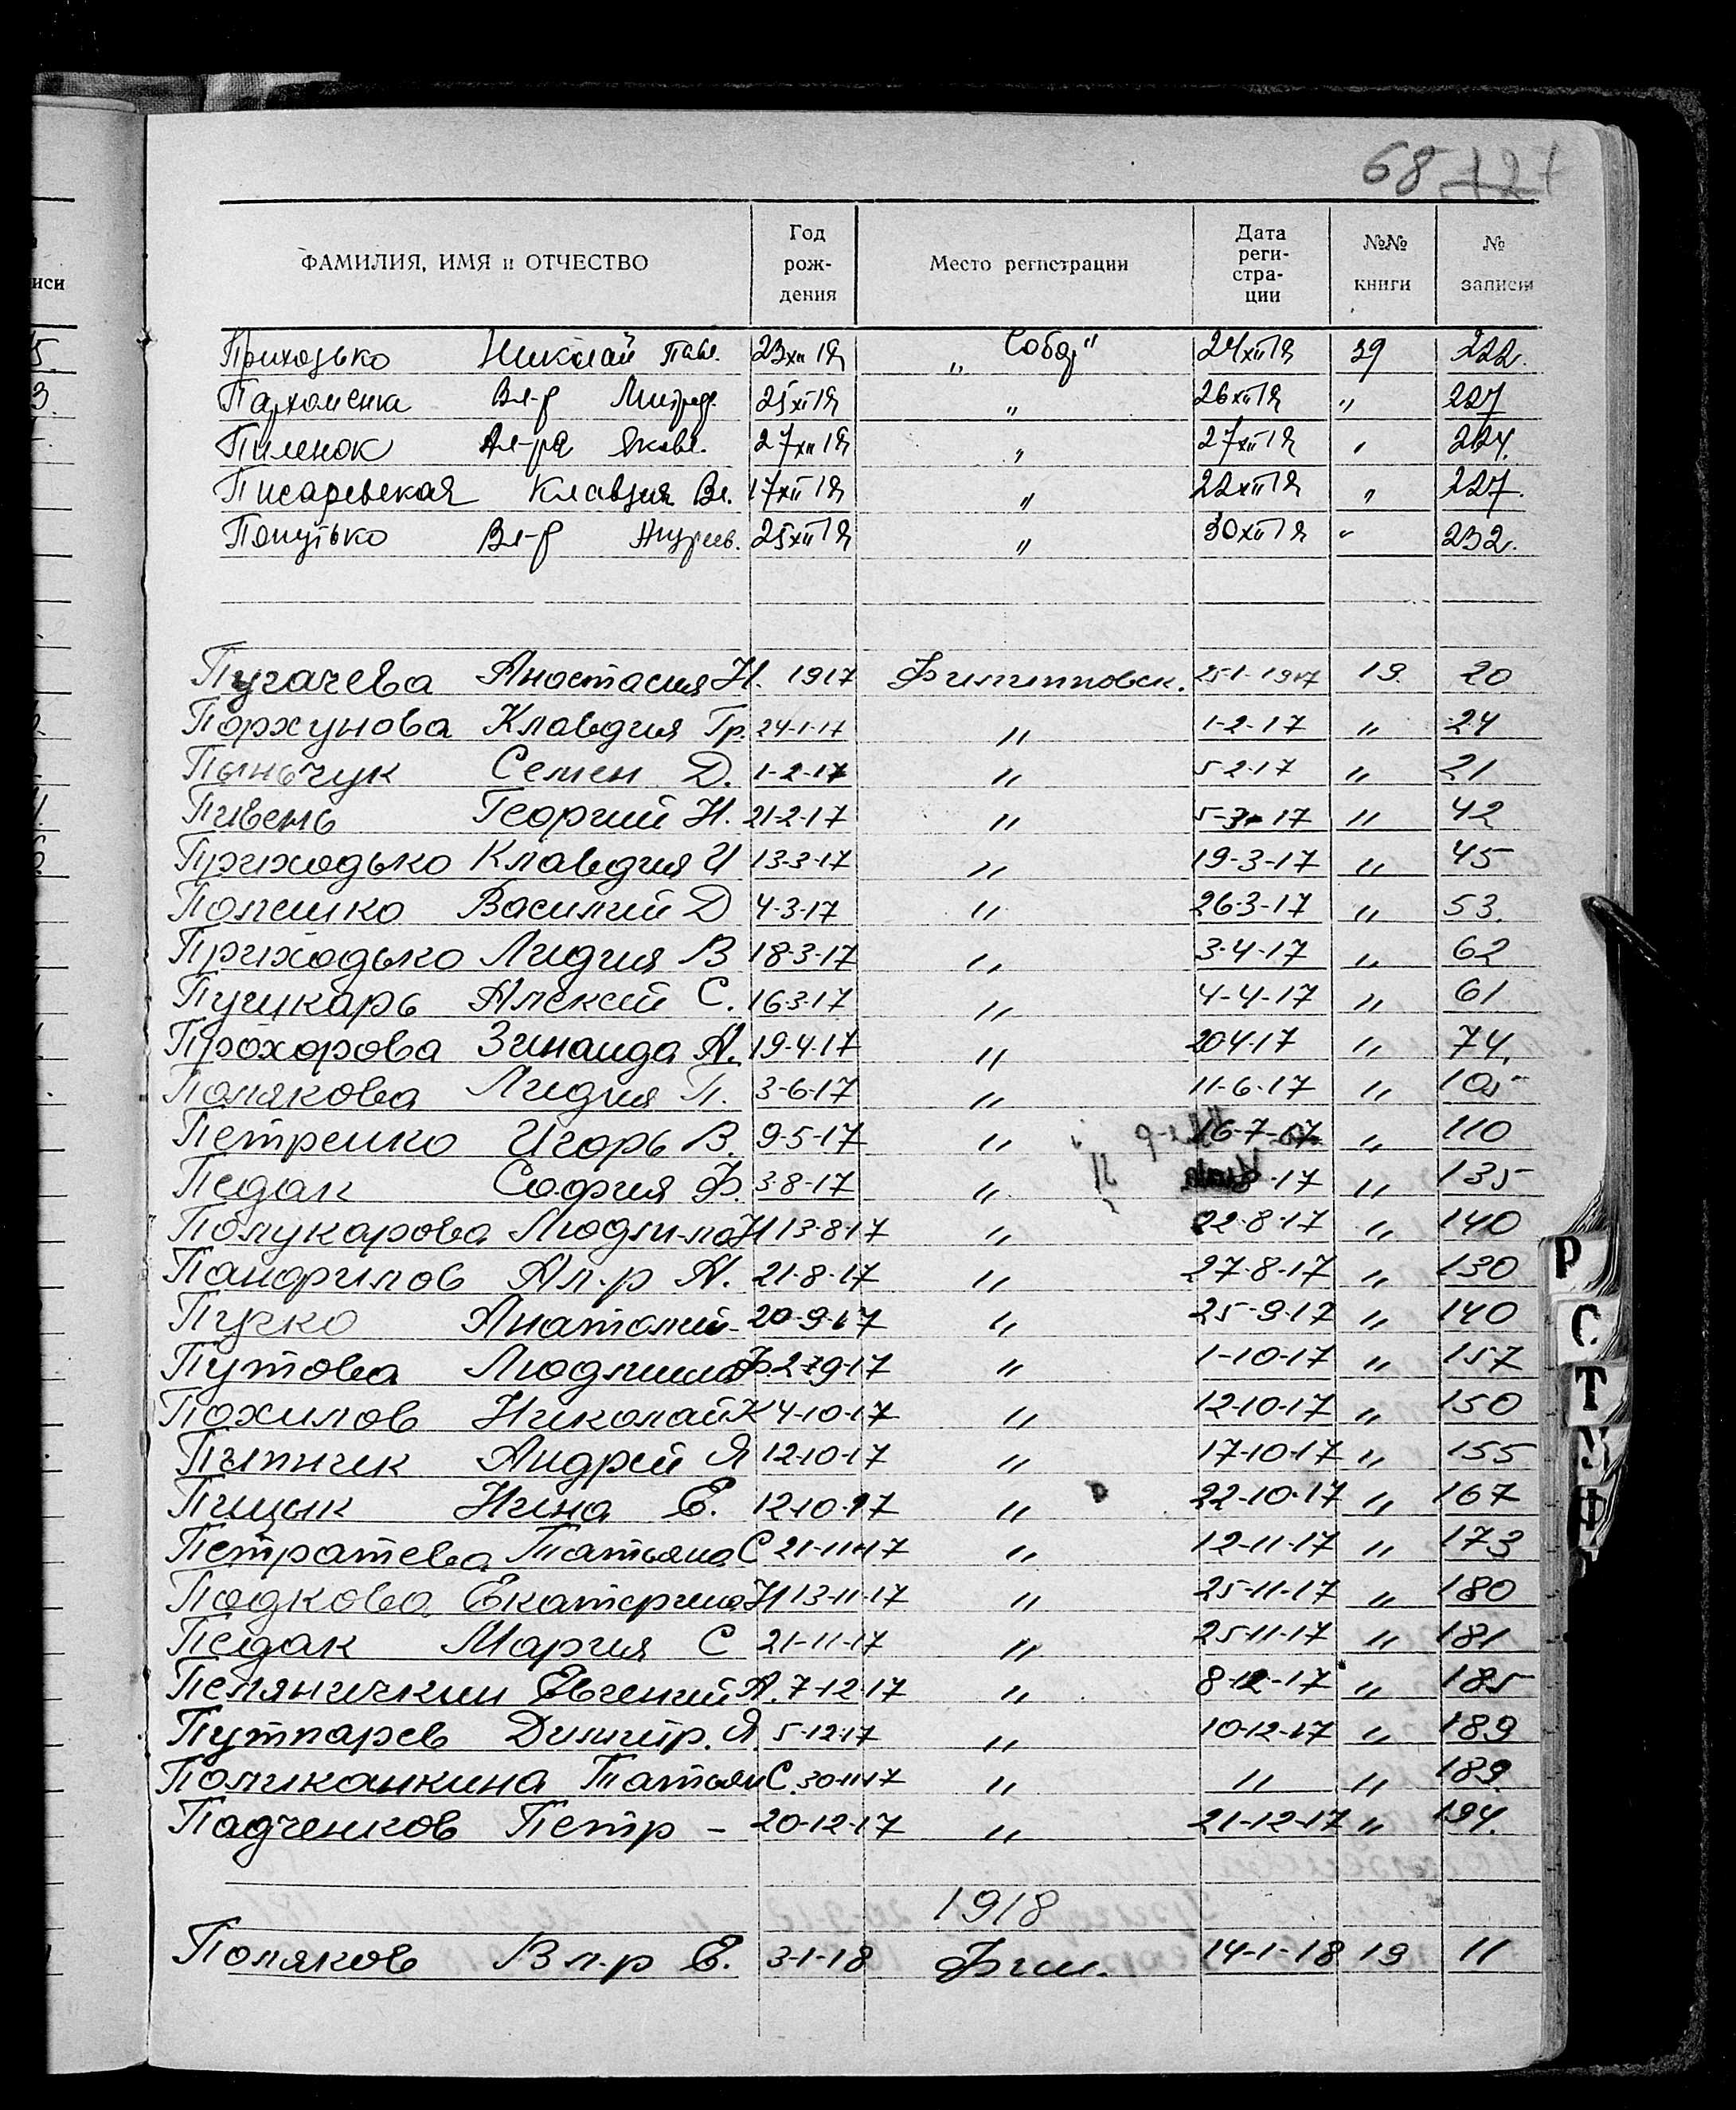 68 127
ФАМИЛИЯ, ИМЯ и ОТЧЕСТВО Год рож-дения Место регистрации Дата реги-стра-ции №№ книги № записи
Приходько Николай Павл. 23 XII 19 „ Собор" 24 XII 19 39 222.
Пархоменко Вл-р Митроф. 25 XII 19 „ 26 XII 19 „ 227
Пиленок Ал-ра Яковл. 27 XII 19 „ 27 XII 19 „ 224.
Писаревская Клавдия Вл. 17 XII 19 „ 22 XII 19 „ 227.
Вл-р Андреев. 25 XII 19 „ 30 XII 19 „ 232.
Пугачева Анастасия Н. 1917 Филипповск. 25-1-1917 19 20
Порхунова Клавдия Гр. 24-1-17 „ 1-2-17 „ 24
Пыньчук Семен Д. 1-2-17 „ 5-2-17 „ 21
Пивень Георгий Н. 21-2-17 „ 5-3-17 „ 42
Приходько Клавдия И 13-3-17 „ 19-3-17 „ 45
Полешко Василий Д 4-3-17 „ 26-3-17 „ 53.
Приходько Лидия В 18-3-17 „ 3-4-17 „ 62
Алексей С. 16-3-17 „ 4-4-17 „ 61
Прохорова Зинаида А. 19-4-17 „ 20 4-17 „ 74.
Полякова Лидия П. 3-6-17 „ 11-6-17 „ 105
Петренко Игорь В. 9-5-17 „ 16-7-17 „ 110
Педак София Ф. 3-8-17 „ 17 „ 135
Полукарова Людмила Н 13-8-17 „ 22-8-17 „ 140
Панфилов Ал-р А. 21-8-17 „ 27-8-17 „ 130
Пучко Анатолий - 20-9-17 „ 25-9-17 „ 140
Путова Людмила Ф. 9-17 „ 1-10-17 „ 157
Похилов Николай К 4-10-17 „ 12-10-17 „ 150
Андрей Я 12-10-17 „ 17-10-17 „ 155
Пицык Нина Е. 12-10-17 „ 22-10-17 „ 167
Петратева Татьяна С 21-11-17 „ 12-11-17 „ 173
Подкова Екатерина Н 13-11-17 „ 25-11-17 „ 180
Педак Мария С 21-11-17 „ 25-11-17 „ 181
Пеляничкин Евгений А. 7-12-17 „ 8-12-17 „ 185
Путпарев Димитр. Я. 5-12-17 „ 10-12-17 „ 189
Поликанкина Татьян С. 30-11-17 „ „ „ 189.
Падченков Петр - 20-12-17 „ 21-12-17 „ 194.
1918
Поляков Вл-р Е. 3-1-18 Фил. 14-1-18 19 11
Р
С
Т
У
Ф